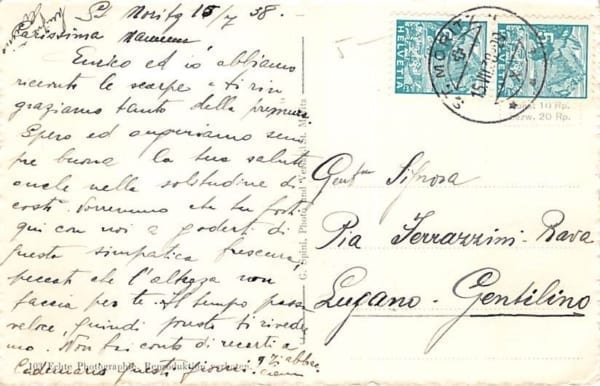 St Moritz 15/7 38.
Carissima
Enrico ed io abbiamo
ricevuto le scarpe e ti rin
graziamo tanto della premura.
Spero ed auguriamo sem
pre buona la tua salute
anche nella solitudine di
costì. Vorremmo che tu fossi
qui con noi a goderti di
questa simpatica frescura,
peccato che l'altezza non
faccia per te. Il tempo passa
veloce, quindi presto ti rivedre
mo. Non hai conto di recarti a
Cadenario questi giorni?
Ti abbrac
HELVETIA
HELVETIA
ST. MORITZ
15.VII.38
10 Rp.
bzw. 20 Rp.
Gent.ma Signora
Pia Terrazzini-Rava
Lugano-Gentilino
G. Spini, Photo und Verlag, St. Moritz
Echte Photographie. Reproduktion verboten.